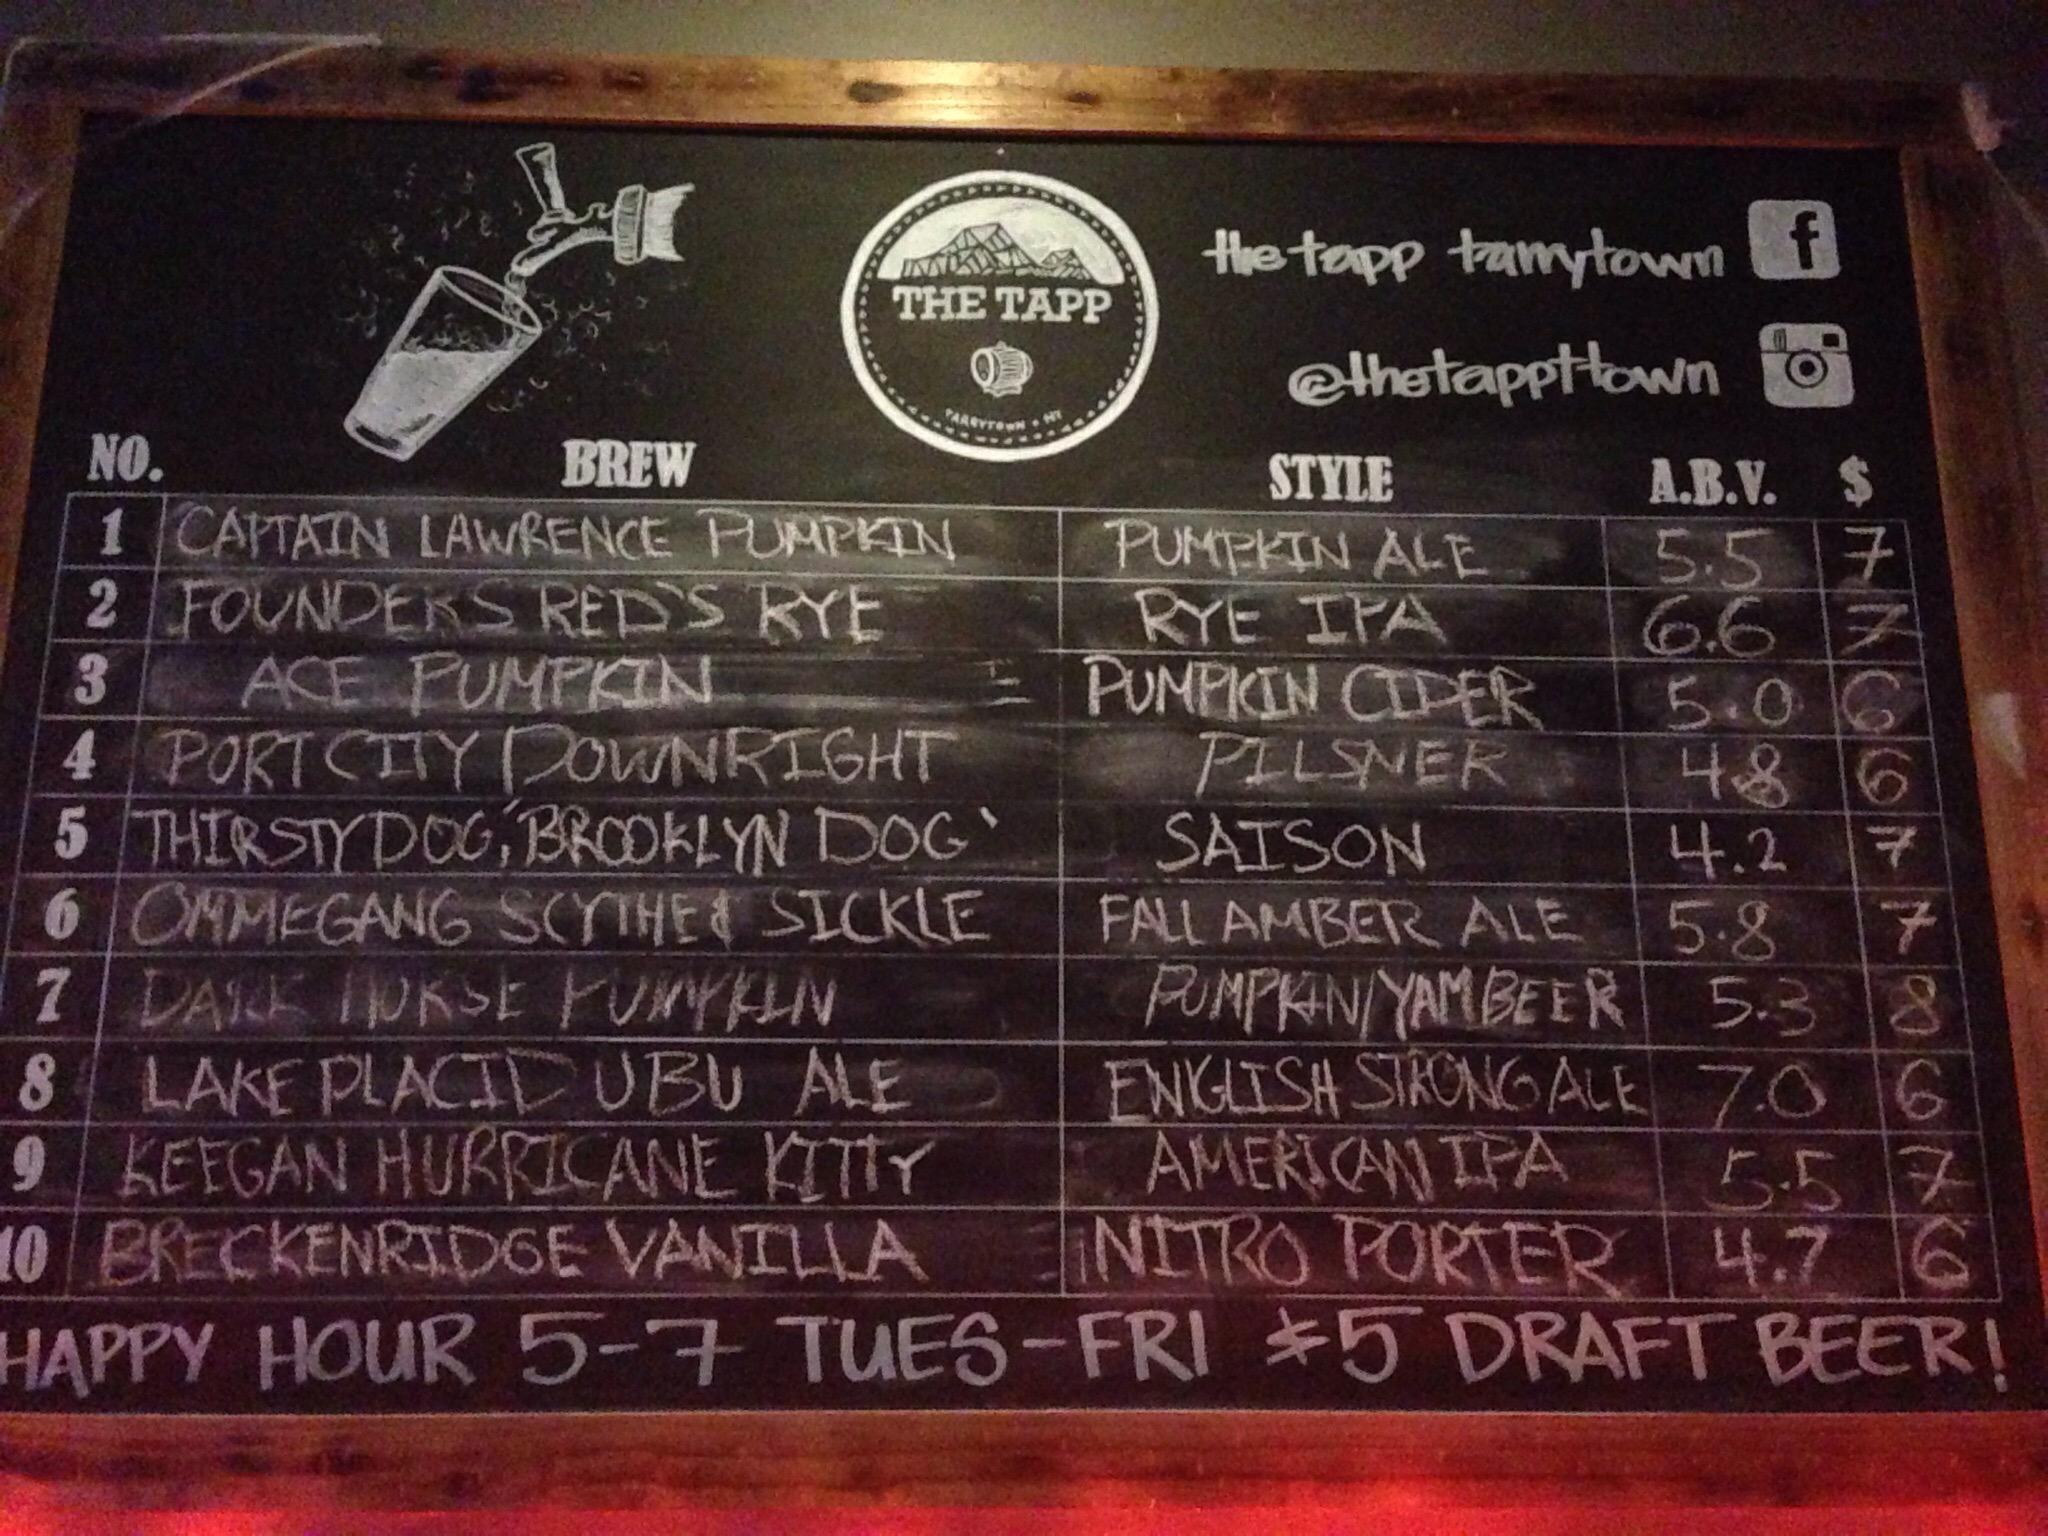 the tapp tarrytown f
THE TAPP
TARRYTOWN • NY
@thetappttown
NO. BREW STYLE A.B.V. $
1 CAPTAIN LAWRENCE PUMPKIN PUMPKIN ALE 5.5 7
2 FOUNDERS RED'S RYE RYE IPA 6.6 7
3 ACE PUMPKIN PUMPKIN CIDER 5.0 6
4 PORT CITY DOWNRIGHT PILSNER 4.8 6
5 THIRSTY DOG, 'BROOKLYN DOG' SAISON 4.2 7
6 OMMEGANG SCYTHE & SICKLE FALL AMBER ALE 5.8 7
7 DARK HORSE PUMPKIN PUMPKIN/YAM BEER 5.3 8
8 LAKE PLACID UBU ALE ENGLISH STRONG ALE 7.0 6
9 KEEGAN HURRICANE KITTY AMERICAN IPA 5.5 7
10 BRECKENRIDGE VANILLA NITRO PORTER 4.7 6
HAPPY HOUR 5-7 TUES-FRI $5 DRAFT BEER!